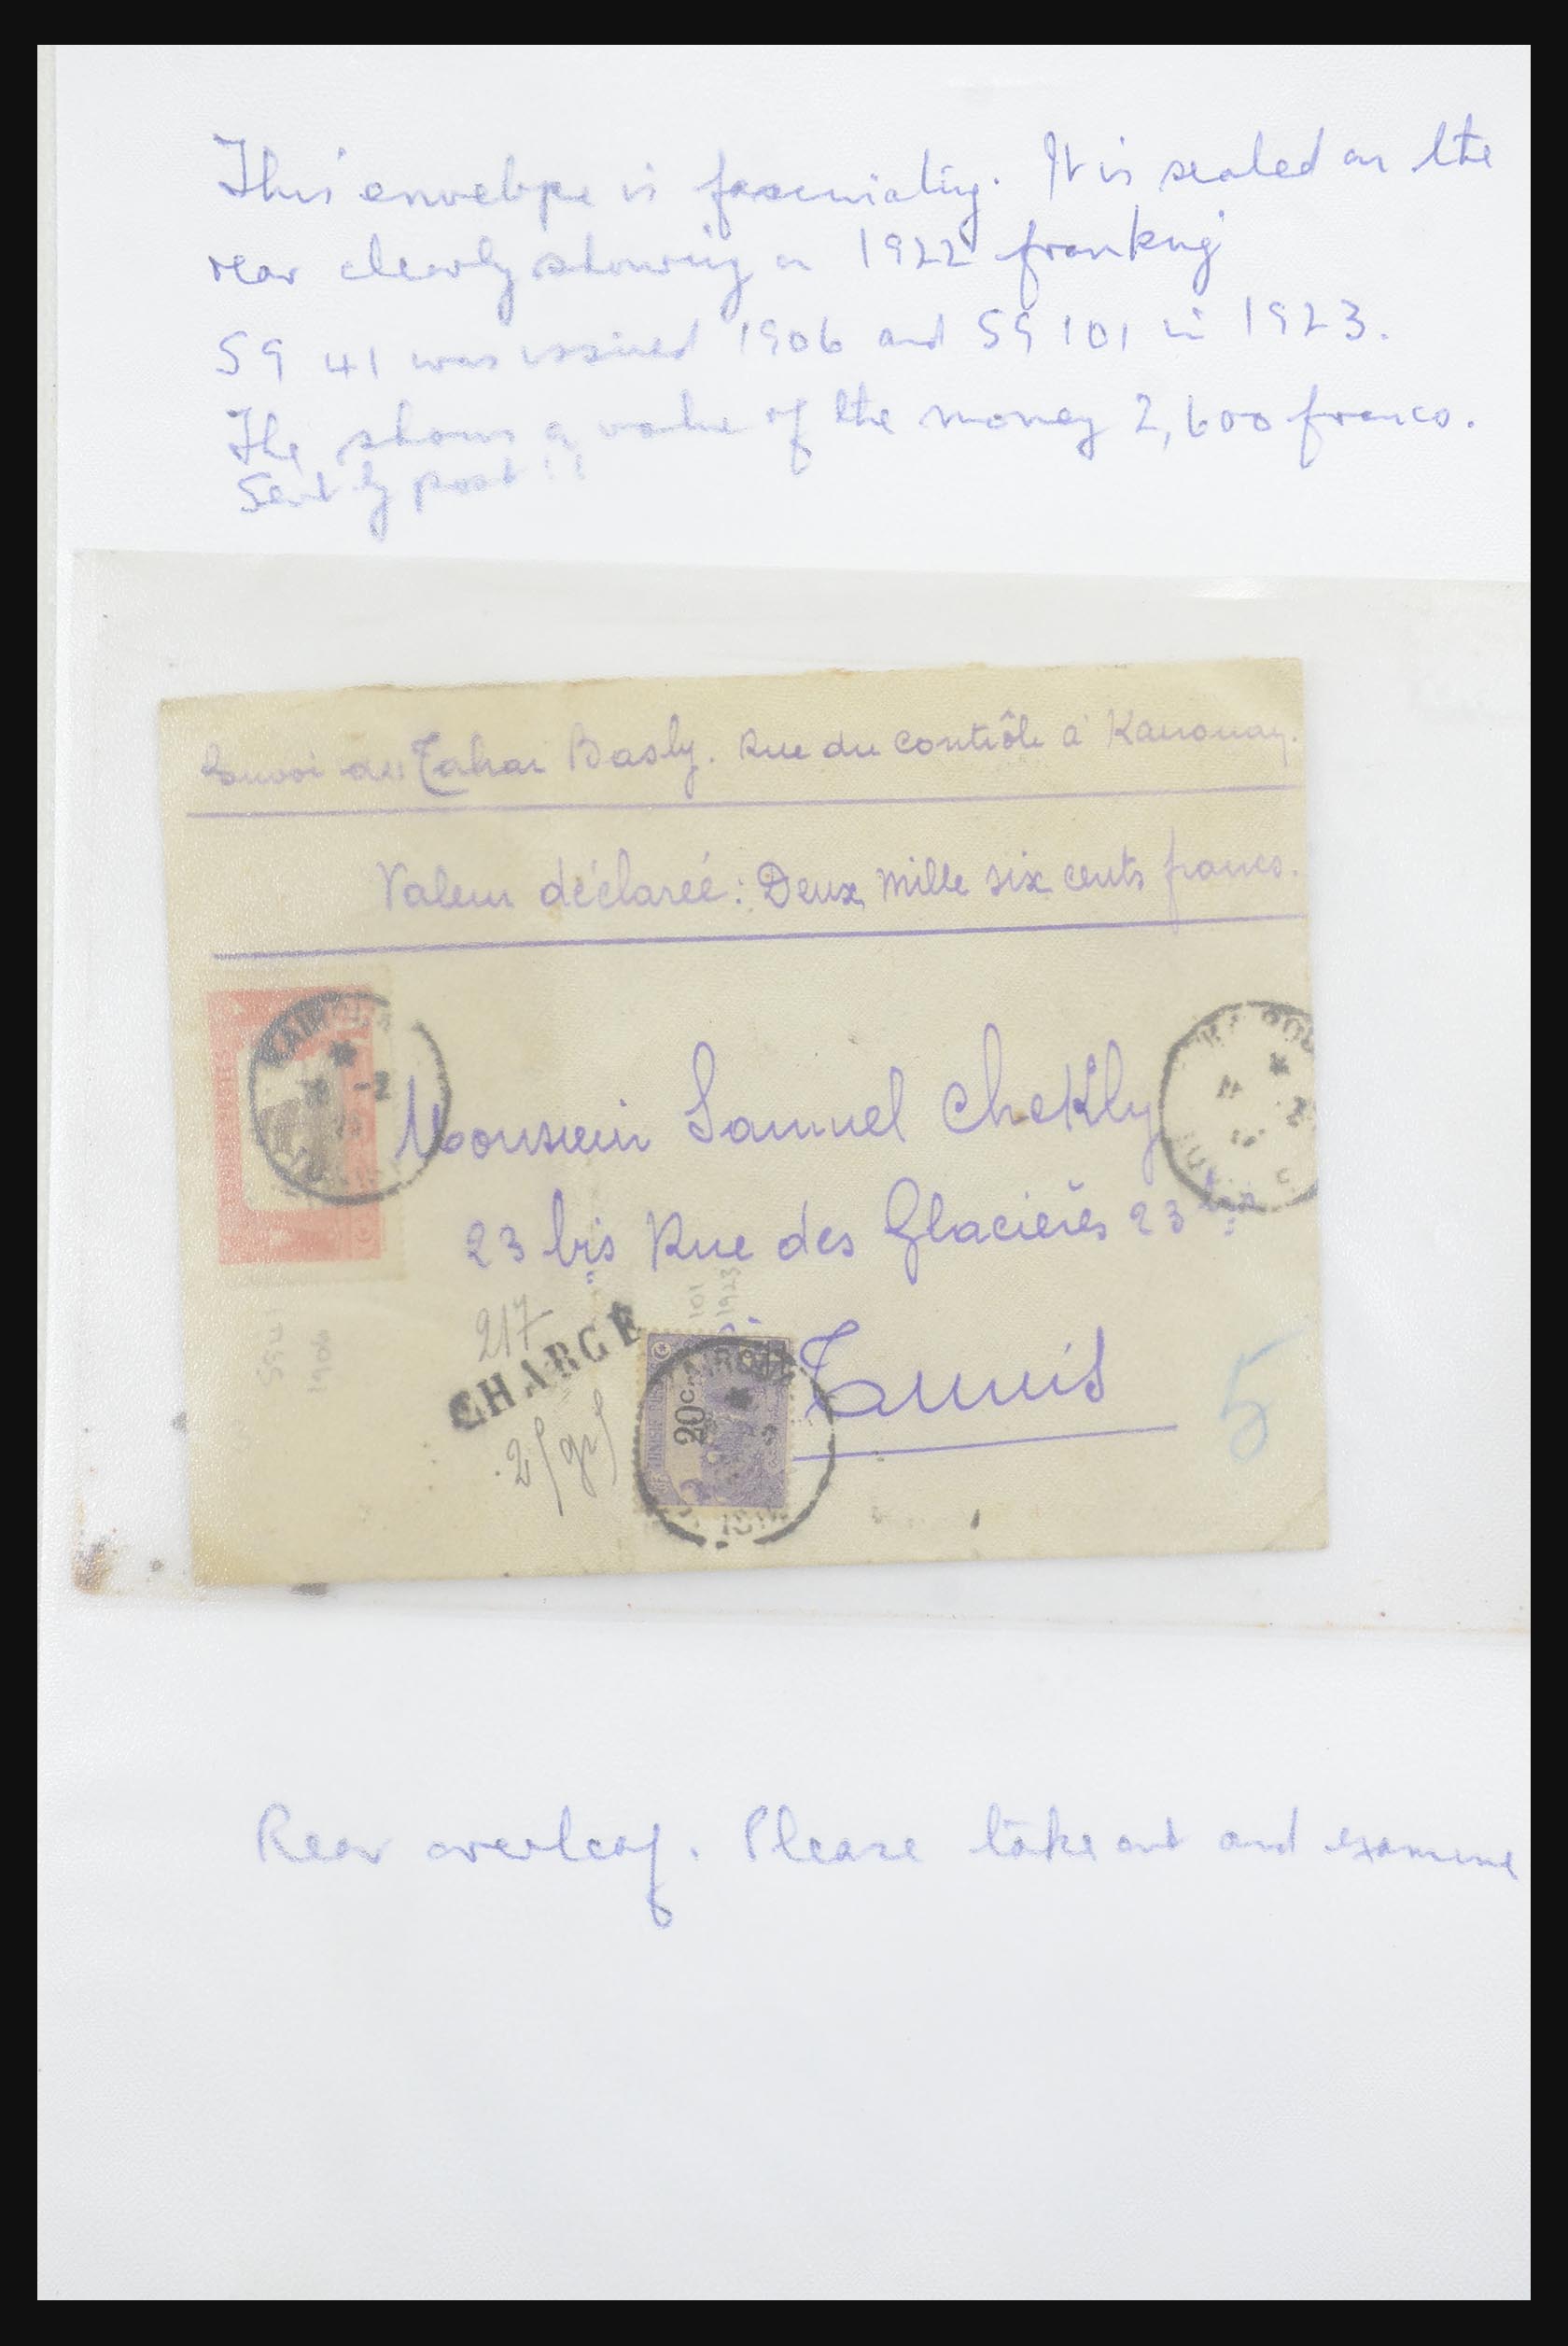 This envelope is fascinating. It is sealed on the
rear clearly showing a 1922 franking
SG 41 was issued 1906 and SG 101 in 1923.
The shows a value of the money 2,600 francs.
Sent by post!!
Envoi de Tahar Basly. Rue du Contrôle à Kairouan.
Valeur déclareé: Deux mille six cents francs.
Monsieur Samuel Chekly
23 bis Rue des Glacières 23 bis
à Tunis
217
CHARGE
2
20c
101
1923
SG41
1906
5
Rear overleaf. Please take out and examine